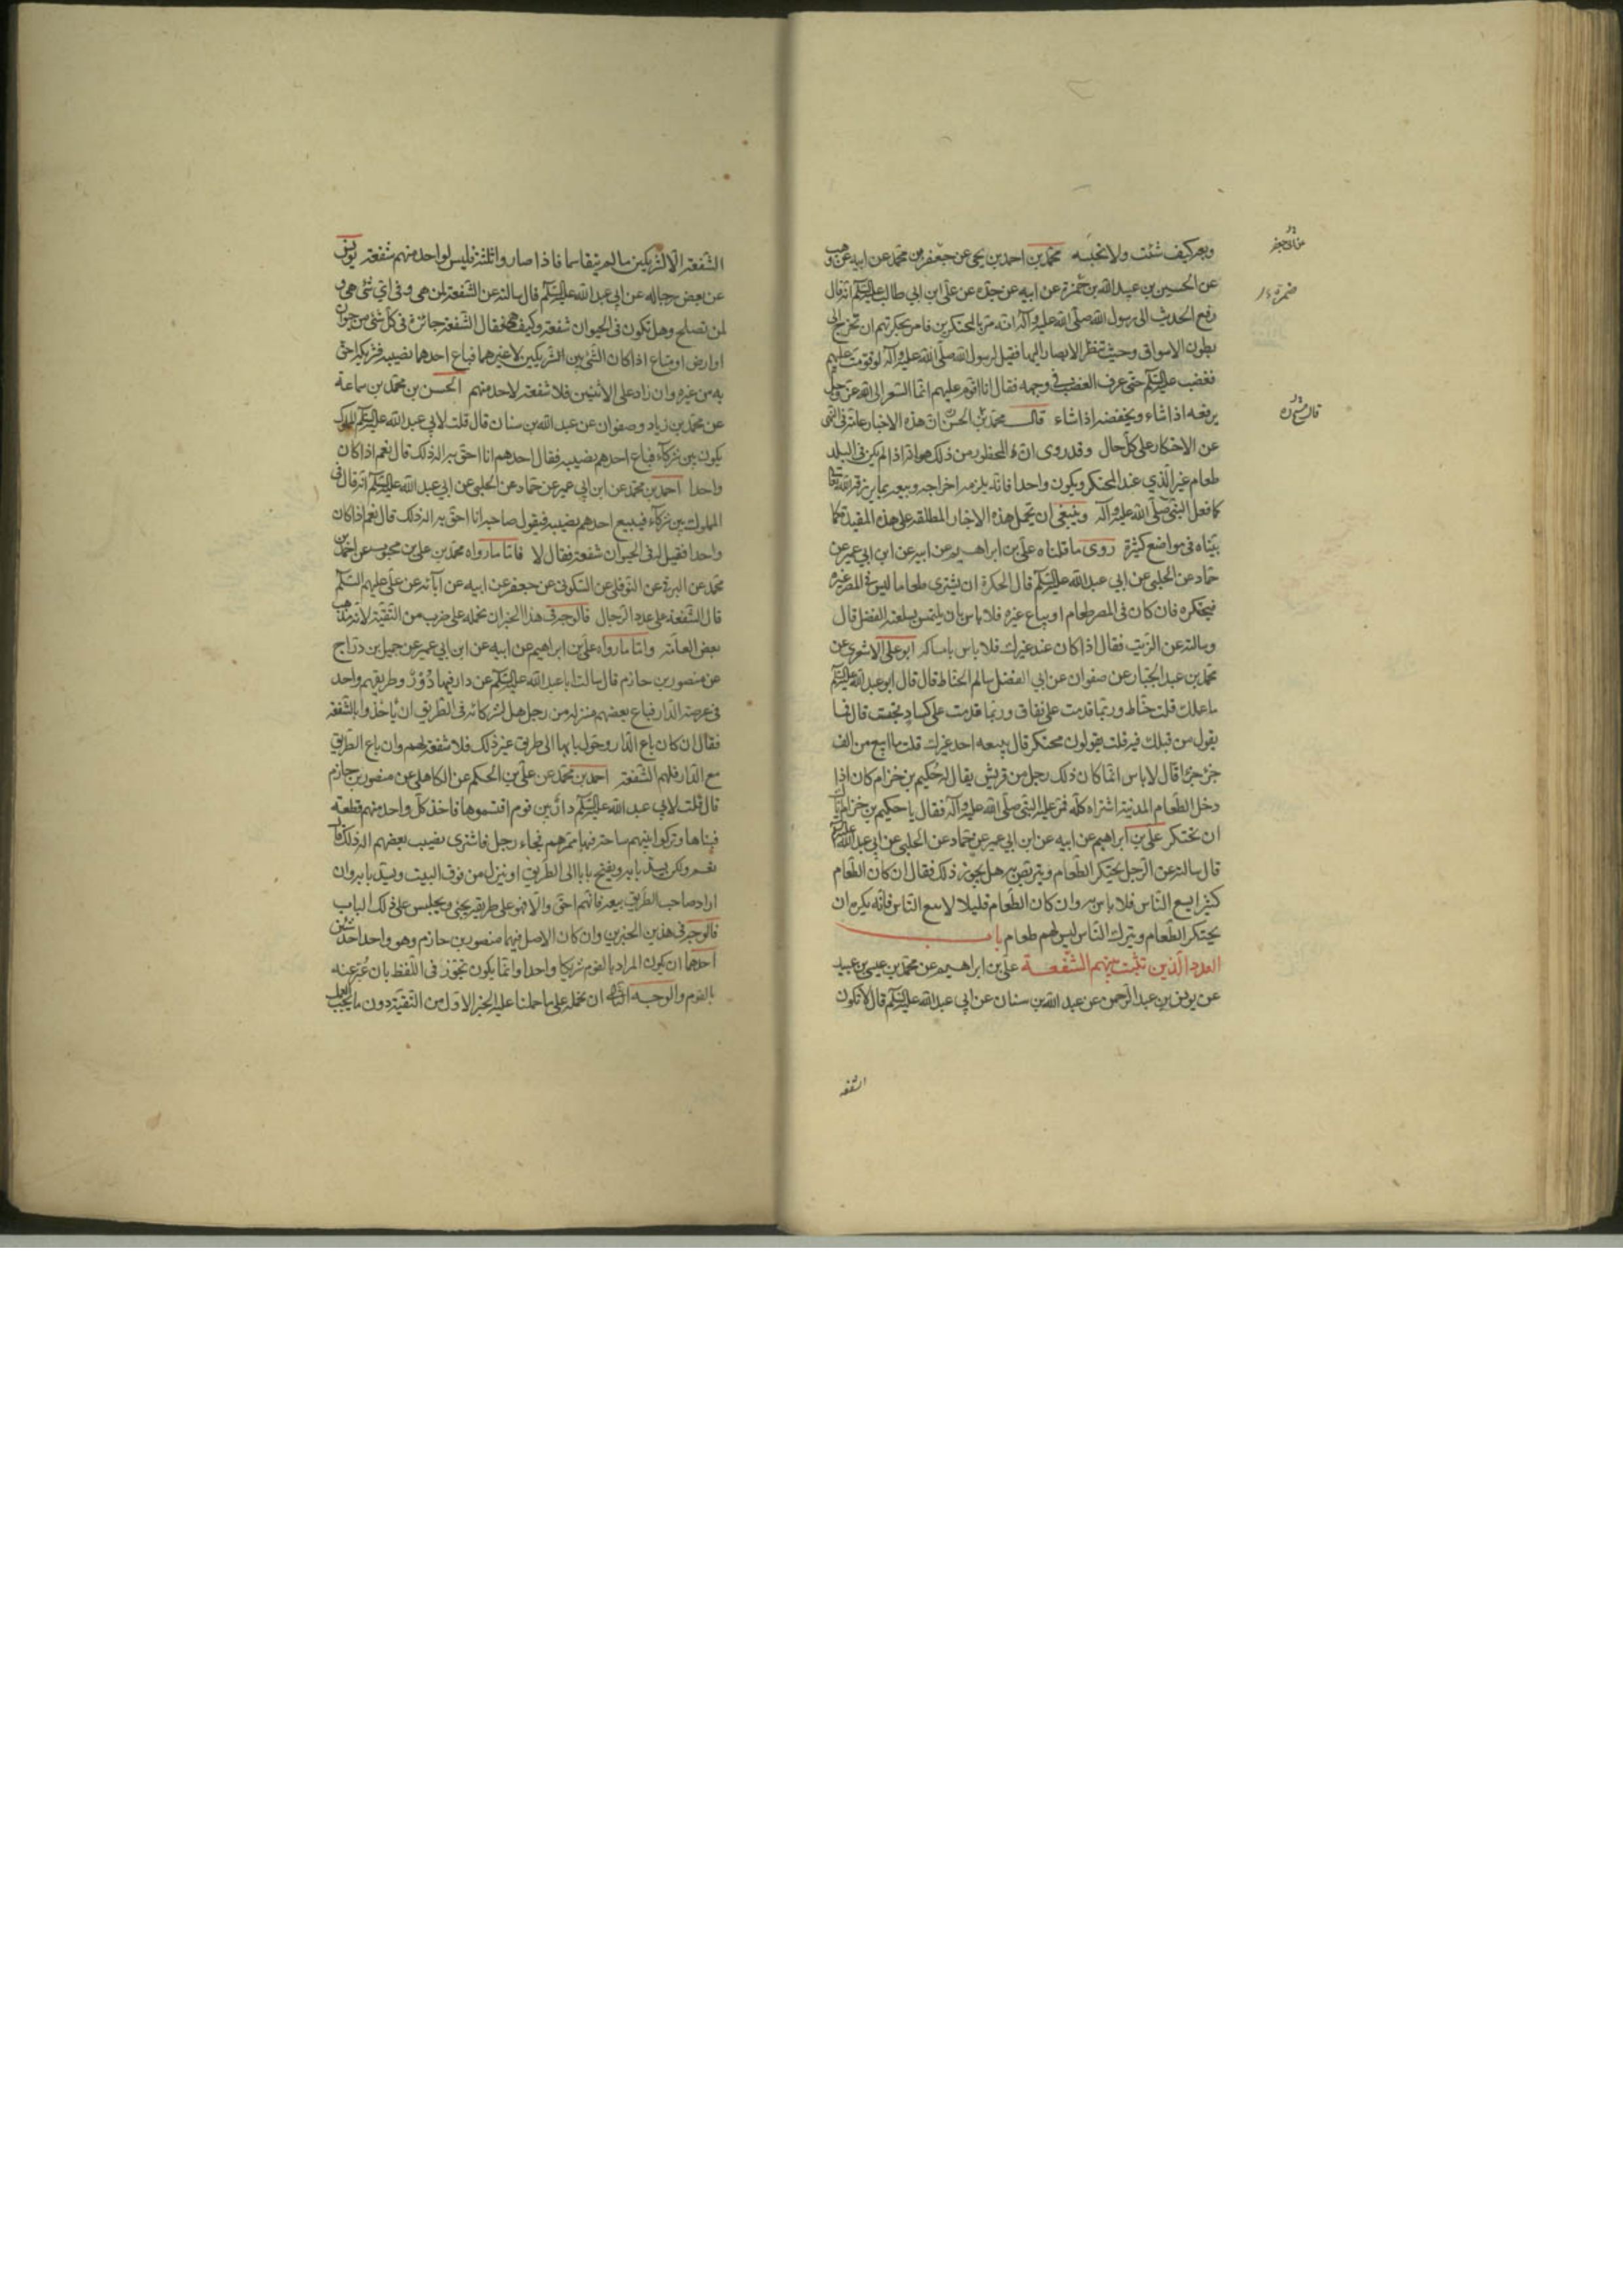 وبعه كيف شئت ولا تحبسه محمد بن احمد بن يحيى عن جعفر بن محمد عن ابيه عن وهب
عن الحسين بن عبيد الله بن حمزة عن ابيه عن جده عن علي ابن ابي طالب عليه السلم انه قال
رفع الحديث الى رسول الله صلى الله عليه وآله انه مر بالمحتكرين فامر بحكرتهم ان تخرج الى
بطون الاسواق وحيث تنظر الابصار اليها فقيل لرسول الله صلى الله عليه وآله لو قومت عليهم
فغضب عليه السلم حتى عرف الغضب في وجهه فقال انا اقوم عليهم انما السعر الى الله عز وجل
يرفعه اذا شاء ويخفضه اذا شاء قال محمد بن الحسن ان هذه الاخبار عامة في النهي
عن الاحتكار على كل حال وقد روى ان المحظور من ذلك هو انه اذا لم يكن في البلد
طعام غير الذي عند المحتكر ويكون واحدا فانه يلزمه اخراجه وبيعه بما يرزقه الله تعالى
كما فعل النبي صلى الله عليه وآله وينبغي ان تحمل هذه الاخبار المطلقه على هذه المقيدة كما
بيناه في مواضع كثيرة روى ما قلناه علي بن ابراهيم عن ابيه عن ابن ابي عمير عن
حماد عن الحلبي عن ابي عبد الله عليه السلم قال الحكرة ان يشترى طعاما ليس في المصر غيره
فيحتكره فان كان في المصر طعام او يباع غيره فلا باس بان يلتمس بسلعته الفضل قال
وسالته عن الزيت فقال اذا كان عند غيرك فلا باس بامساكه ابو علي الاشعري عن
محمد بن عبد الجبار عن صفوان عن ابي الفضل سالم الحناط قال قال ابو عبد الله عليه السلم
ما عملك قلت حناط وربما قدمت على نفاق وربما قدمت على كساد فحبست قال فما
يقول من قبلك فيه قلت يقولون محتكر قال يبيعه احد غيرك قلت ما ابيع من الف
جزء جزءا قال لا باس انما كان ذلك رجل من قريش يقال له حكيم بن حزام كان اذا
دخل الطعام المدينة اشتراه كله فمر عليه النبي صلى الله عليه وآله فقال يا حكيم بن حزام اياك
ان تحتكر علي بن ابراهيم عن ابيه عن ابن ابي عمير عن حماد عن الحلبي عن ابي عبد الله عليه السلم
قال سالته عن الرجل يحتكر الطعام ويتربص به هل يجوز ذلك فقال ان كان الطعام
كثيرا يسع الناس فلا باس به وان كان الطعام قليلا لا يسع الناس فانه يكره ان
يحتكر الطعام ويترك الناس ليس لهم طعام باب
العدد الذين تثبت بينهم الشفعة علي بن ابراهيم عن محمد بن عيسى بن عبيد
عن يونس بن عبد الرحمن عن عبد الله بن سنان عن ابي عبد الله عليه السلم قال لا تكون
الشفعه
ضمرة
الشفعة الا لشريكين ما لم يتقاسما فاذا صاروا ثلثة فليس لواحد منهم شفعة يونس
عن بعض رجاله عن ابي عبد الله عليه السلم قال سالته عن الشفعة لمن هي وفي اي شئ هي و
لمن تصلح وهل تكون في الحيوان شفعة وكيف هي فقال الشفعة جائزة في كل شئ من حيوان
او ارض او متاع اذا كان الشئ بين الشريكين لا غيرهما فباع احدهما نصيبه فشريكه احق
به من غيره وان زاد على الاثنين فلا شفعة لاحد منهم الحسن بن محمد بن سماعة
عن محمد بن زياد وصفوان عن عبد الله بن سنان قال قلت لابي عبد الله عليه السلم المملوك
يكون بين شركاء فباع احدهم نصيبه فقال احدهم انا احق به اله ذلك قال نعم اذا كان
واحدا احمد بن محمد عن ابن ابي عمير عن حماد عن الحلبي عن ابي عبد الله عليه السلم انه قال في
المملوك بين شركاء فيبيع احدهم نصيبه فيقول صاحبه انا احق به اله ذلك قال نعم اذا كان
واحدا فقيل له في الحيوان شفعة فقال لا فاما ما رواه محمد بن علي بن محبوب عن احمد بن
محمد عن البرقي عن النوفلي عن السكوني عن جعفر عن ابيه عن آبائه عن علي عليهم السلم
قال الشفعة على عدد الرجال فالوجه في هذا الخبر ان نحمله على ضرب من التقية لانه مذهب
بعض العامة واما ما رواه علي بن ابراهيم عن ابيه عن ابن ابي عمير عن جميل بن دراج
عن منصور بن حازم قال سالت ابا عبد الله عليه السلم عن دار فيها دُوْرٌ وطريقهم واحد
في عرصة الدار فباع بعضهم منزله من رجل هل لشركائه في الطريق ان ياخذوا بالشفعة
فقال ان كان باع الدار وحول بابها الى طريق غير ذلك فلا شفعة لهم وان باع الطريق
مع الدار فلهم الشفعة احمد بن محمد عن علي بن الحكم عن الكاهلي عن منصور بن حازم
قال قلت لابي عبد الله عليه السلم دار بين قوم اقتسموها فاخذ كل واحد منهم قطعة
فبناها وتركوا بينهم ساحة فيها ممرهم فجاء رجل فاشترى نصيب بعضهم اله ذلك قال
نعم ولكن يسد بابه ويفتح بابا الى الطريق او ينزل من فوق البيت ويسد بابه وان
اراد صاحب الطريق بيعه فانهم احق والا فهو على طريقه يجئ ويجلس على ذلك الباب
فالوجه في هذين الخبرين وان كان الاصل فيهما منصور بن حازم وهو واحد احد شيئين
احدهما ان يكون المراد بالقوم شريكا واحدا وانما يكون تجوز في اللفظ بان عُبّر عنه
بالقوم والوجه الثاني ان نحمله على ما حملنا عليه الخبر الاول من التقية دون ما يجب العمل